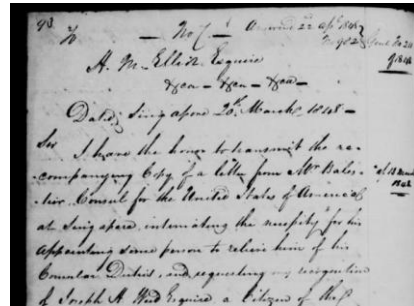 98. No 7. Answered 22 Apl 1848
A. M. Elliott Esquire
&ca - &ca - &ca -
Dated Singapore 20th March 1848 -
Sir
I have the honor to transmit the ac-
companying Copy of a letter from Mr Bales-
-tier Consul for the United States of America
at Singapore, intimating the necessity for his
appointing some person to relieve him of his
Consular Duties, and requesting my recognition
of Joseph A. Weed Esquire, a Citizen of the